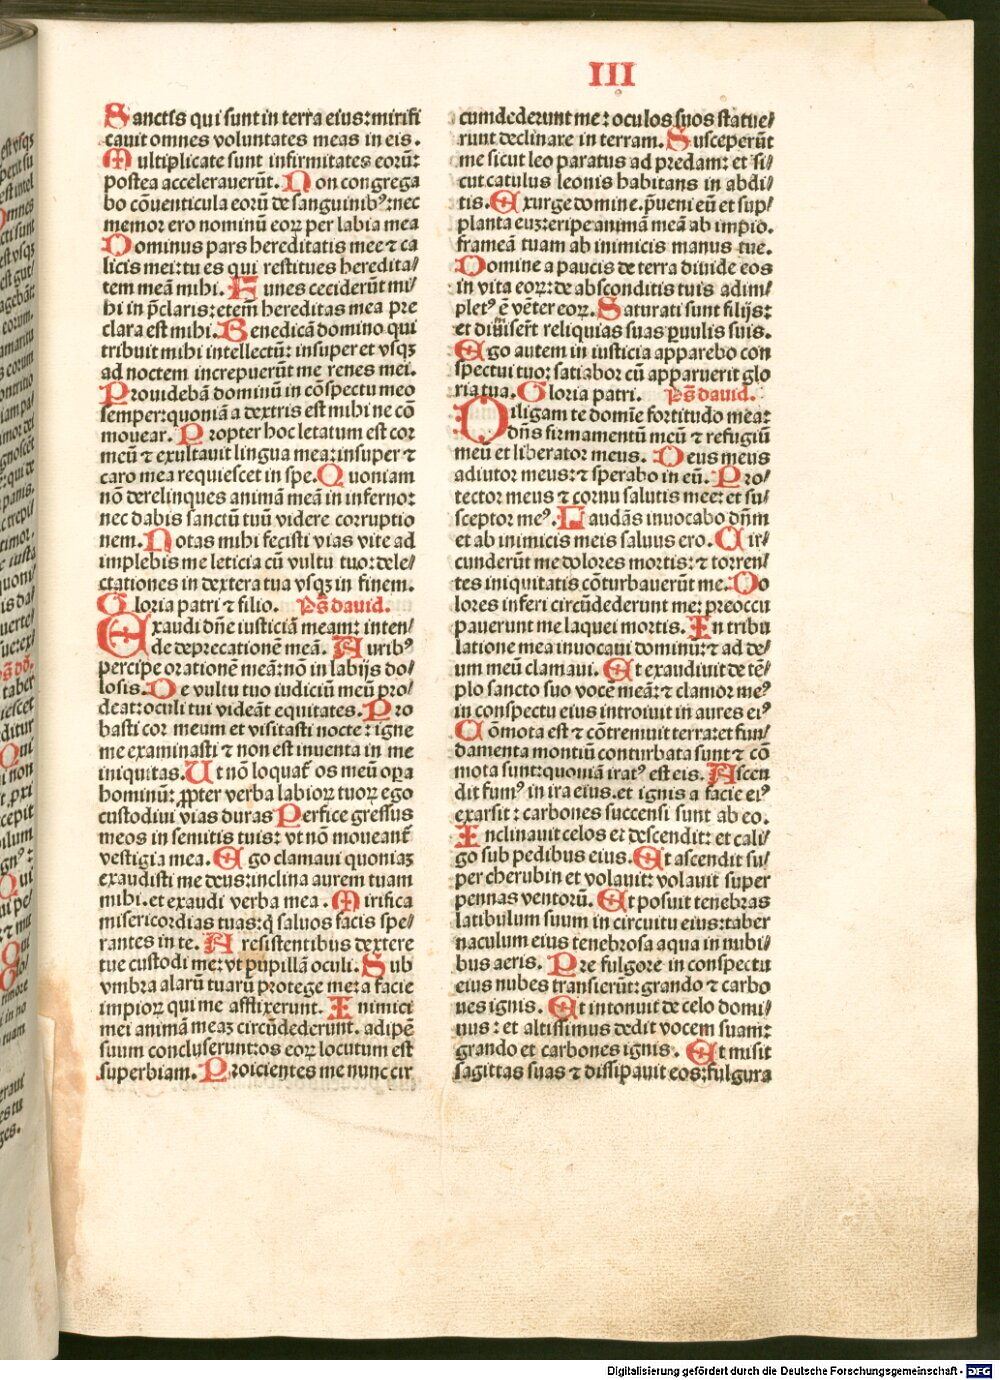 III
Sanctis qui sunt in terra eius: mirifi
cauit omnes voluntates meas in eis.
Multiplicate sunt infirmitates eorū:
postea accelerauerūt. Non congrega
bo cōuenticula eorū de sanguinibꝰ: nec
memor ero nominū eoꝝ per labia mea
Dominus pars hereditatis mee ⁊ ca
licis mei: tu es qui restitues heredita/
tem meā mihi. Funes ceciderūt mi/
hi in p̄claris: etem̄ hereditas mea pre
clara est mihi. Benedicā domino qui
tribuit mihi intellectū: insuper et vsqꝫ
ad noctem increpuerūt me renes mei.
Prouidebā dominū in cōspectu meo
semper: quoniā a dextris est mihi ne cō
mouear. Propter hoc letatum est cor
meū ⁊ exultauit lingua mea: insuper ⁊
caro mea requiescet in spe. Quoniam
nō derelinques animā meā in inferno:
nec dabis sanctū tuū videre corruptio
nem. Notas mihi fecisti vias vite ad
implebis me leticia cū vultu tuo: dele/
ctationes in dextera tua vsqꝫ in finem.
Gloria patri ⁊ filio. Ps̄ dauid.
Exaudi dn̄e iusticiā meam: inten/
de deprecationē meā. Auribꝰ
percipe orationē meā: nō in labijs do/
losis. De vultu tuo iudiciū meū pro/
deat: oculi tui videāt equitates. Pro
basti cor meum et visitasti nocte: igne
me examinasti ⁊ non est inuenta in me
iniquitas. Ut nō loquat᷑ os meū oꝑa
hominū: ꝓpter verba labioꝝ tuoꝝ ego
custodiui vias duras Perfice gressus
meos in semitis tuis: vt nō moueant᷑
vestigia mea. Ego clamaui quoniaꝫ
exaudisti me deus: inclina aurem tuam
mihi. et exaudi verba mea. Mirifica
misericordias tuas: q̄ saluos facis spe/
rantes in te. A resistentibus dextere
tue custodi me: vt pupillā oculi. Sub
vmbra alarū tuarū protege me: a facie
impioꝝ qui me afflixerunt. Inimici
mei animā meaꝫ circūdederunt. adipē
suum concluserunt: os eoꝝ locutum est
superbiam. Proicientes me nunc cir
cumdederunt me: oculos suos statue/
runt declinare in terram. Susceperūt
me sicut leo paratus ad predam: et si/
cut catulus leonis habitans in abdi/
tis. Exurge domine. p̄ueni eū et sup/
planta euꝫ: eripe animā meā ab impio.
frameā tuam ab inimicis manus tue.
Domine a paucis de terra diuide eos
in vita eoꝝ: de absconditis tuis adim/
pletꝰ ē vēter eoꝝ. Saturati sunt filijs:
et dimiser̄t reliquias suas ꝑuulis suis.
Ego autem in iusticia apparebo con
spectui tuo: satiabor cū apparuerit glo
ria tua. Gloria patri. Ps̄ dauid.
Diligam te domīe fortitudo mea:
dn̄s firmamentū meū ⁊ refugiū
meū et liberator meus. Deus meus
adiutor meus: ⁊ sperabo in eū. Pro/
tector meus ⁊ cornu salutis mee: et su/
sceptor meꝰ. Laudās inuocabo dn̄m
et ab inimicis meis saluus ero. Cir/
cunderūt me dolores mortis: ⁊ torren/
tes iniquitatis cōturbauerūt me. Do
lores inferi circūdederunt me: preoccu
pauerunt me laquei mortis. In tribu
latione mea inuocaui dominū: ⁊ ad de/
um meū clamaui. Et exaudiuit de tē/
plo sancto suo vocē meā: ⁊ clamor meꝰ
in conspectu eius introiuit in aures eiꝰ
Cōmota est ⁊ cōtremuit terra: et fun/
damenta montiū conturbata sunt ⁊ cō
mota sunt: quoniā iratꝰ est eis. Ascen
dit fumꝰ in ira eius. et ignis a facie eiꝰ
exarsit: carbones succensi sunt ab eo.
Inclinauit celos et descendit: et cali/
go sub pedibus eius. Et ascendit su/
per cherubin et volauit: volauit super
pennas ventorū. Et posuit tenebras
latibulum suum in circuitu eius: taber
naculum eius tenebrosa aqua in nubi/
bus aeris. Pre fulgore in conspectu
eius nubes transierūt: grando ⁊ carbo
nes ignis. Et intonuit de celo domi/
nus: et altissimus dedit vocem suam:
grando et carbones ignis. Et misit
sagittas suas ⁊ dissipauit eos: fulgura
Digitalisierung gefördert durch die Deutsche Forschungsgemeinschaft - DFG